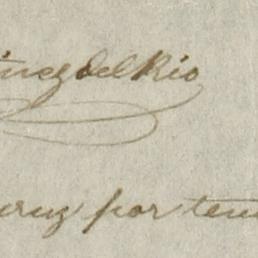 inez del Rio
cruz por tem